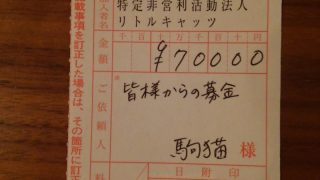 載事項を訂正した場合は、その箇所に訂正
加入者名
特定非営利活動法人
リトルキャッツ
金額
千百十万千百十円
¥70000
ご依頼人
皆様からの募金
駒猫 様
料
日附印